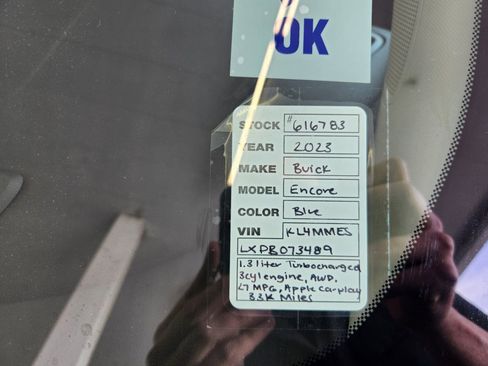 OK
STOCK #616783
YEAR 2023
MAKE Buick
MODEL Encore
COLOR Blue
VIN KL4MMES
LXPB073489
1.3 liter Turbocharged
3cyl engine, AWD.
27 MPG, Apple Carplay
33K Miles